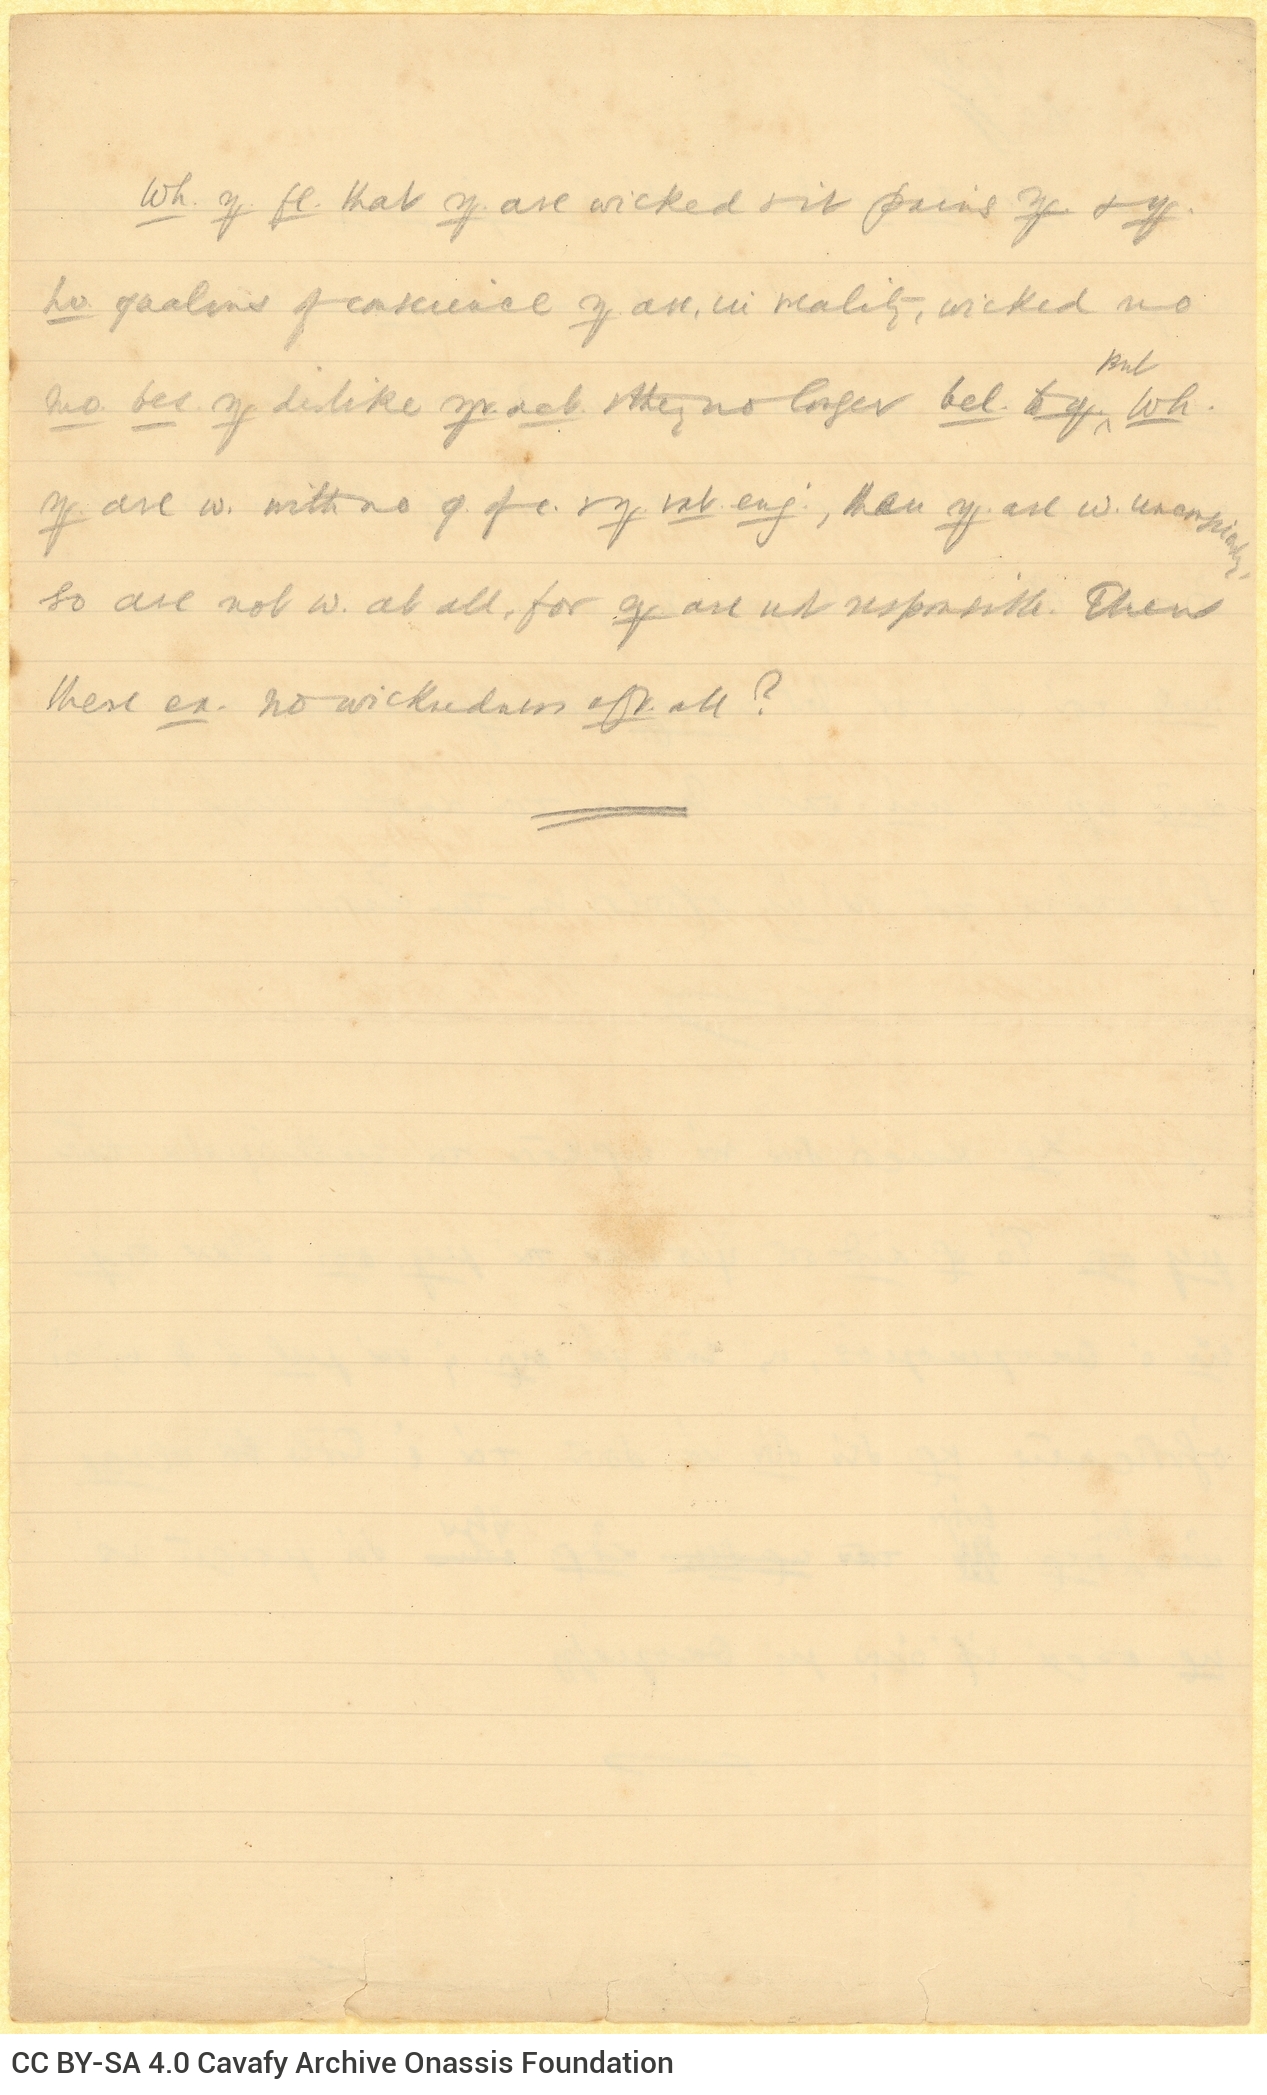 Wh. y. fe. that y. are wicked & it pains y. & y.
ha. qualms of conscience y. are, in reality, wicked no
mo. bec. y. dislike yr. nat. & they no longer bel. to y. but Wh.
y. are w. with no q. of c. & y. rat. enj., then y. are w. unconsciously,
so are not w. at all, for y. are not responsible. Then
there ex. no wickedness aft. all?
CC BY-SA 4.0 Cavafy Archive Onassis Foundation